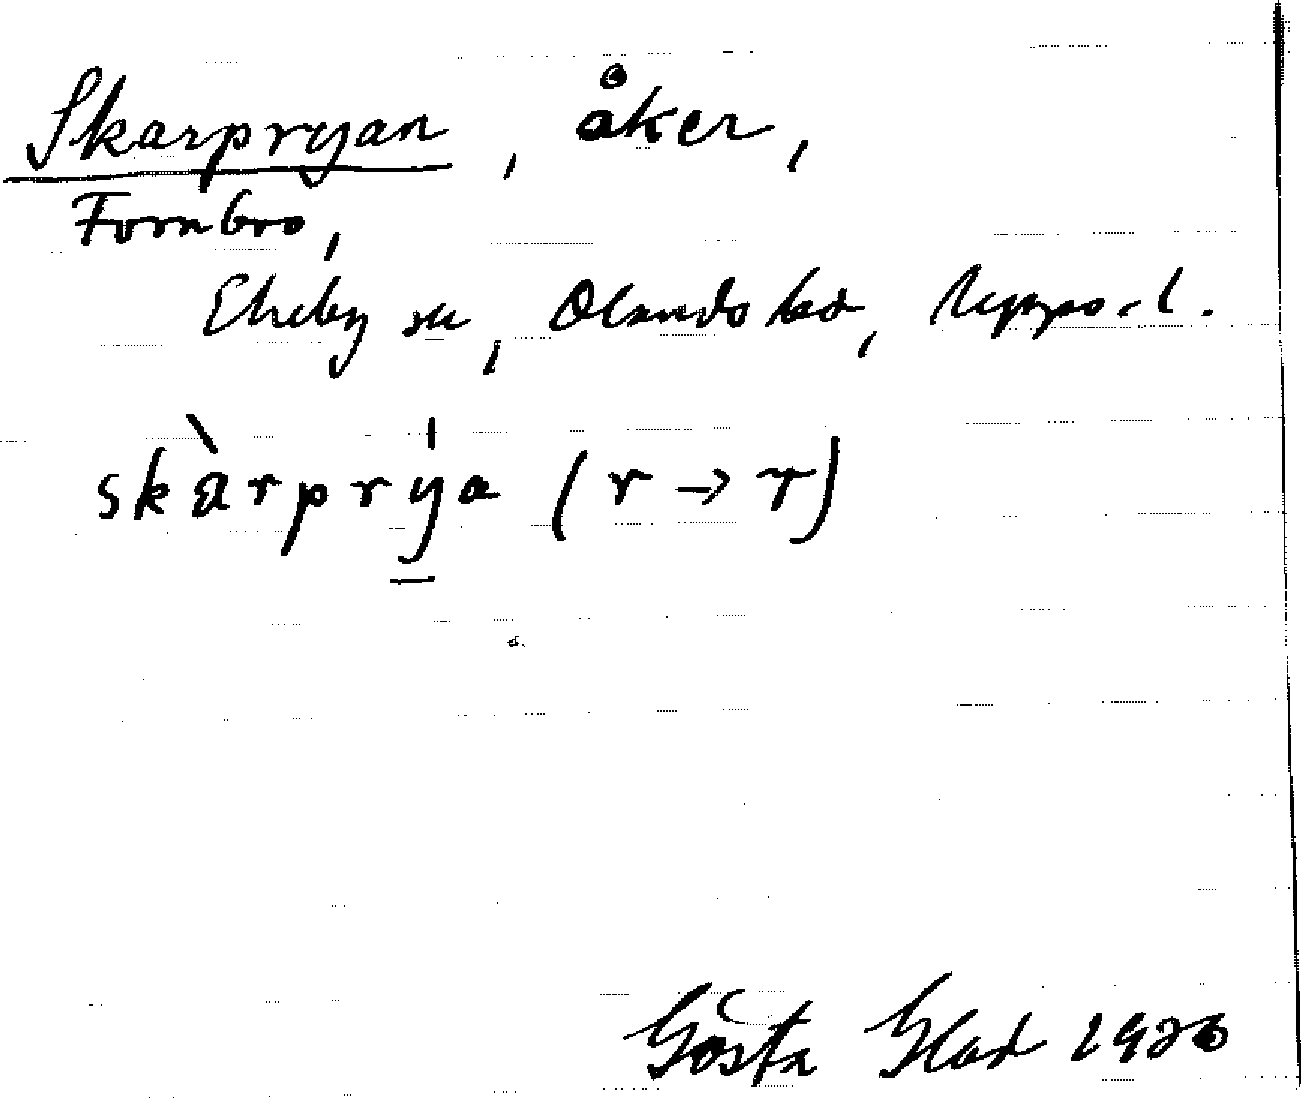 Skarpryan, åker,
Fornbro,
Ekeby sn, Olands hd, Uppsa. l.
skàrprýa (r → r)
Gösta Blad 1926